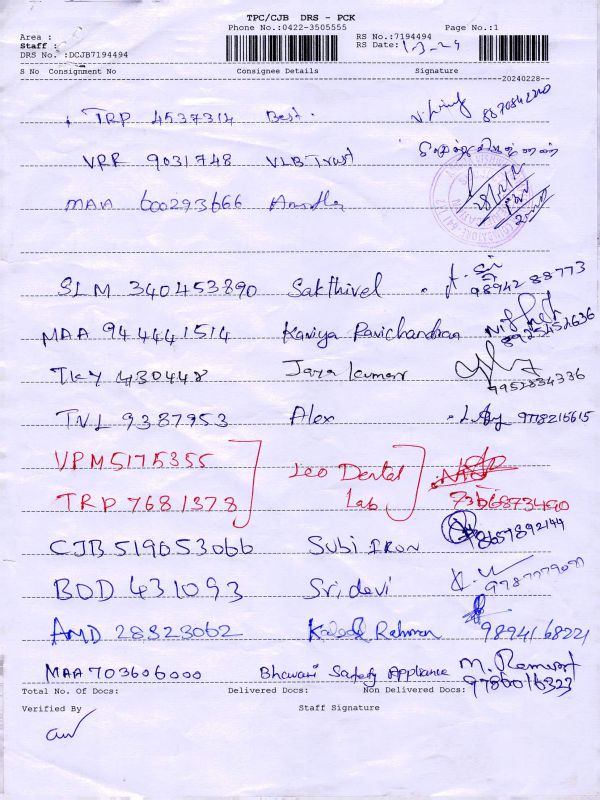 TPC/CJB DRS - PCK
Phone No.:0422-3505555
Page No.:1
Area :
RS No.:7194494
Staff :
RS Date: 1-3-24
DRS No. :DCJB7194494
S No Consignment No Consignee Details Signature
20240228
1 TRP 4537314 Best. 8870842210
VRR 9031748 VLB Trust
MAA 600293666
SLM 340453890 Sakthivel 98942 88773
MAA 944441514 Kaviya Ravichandran 8925452636
TKY 430448 Jaya kumar 9952834336
TNL 9387953 Alex 9778215615
VPM 5175355 Leo Dental
TRP 7681373 Lab
CJB 519053066 Subi IRON 8657892144
BDD 431093 Sri devi
AMD 28323062 Rahman 9894168221
MAA 703606000 Bhavani Safety Appliance 9786016323
Total No. Of Docs: Delivered Docs: Non Delivered Docs:
Verified By Staff Signature